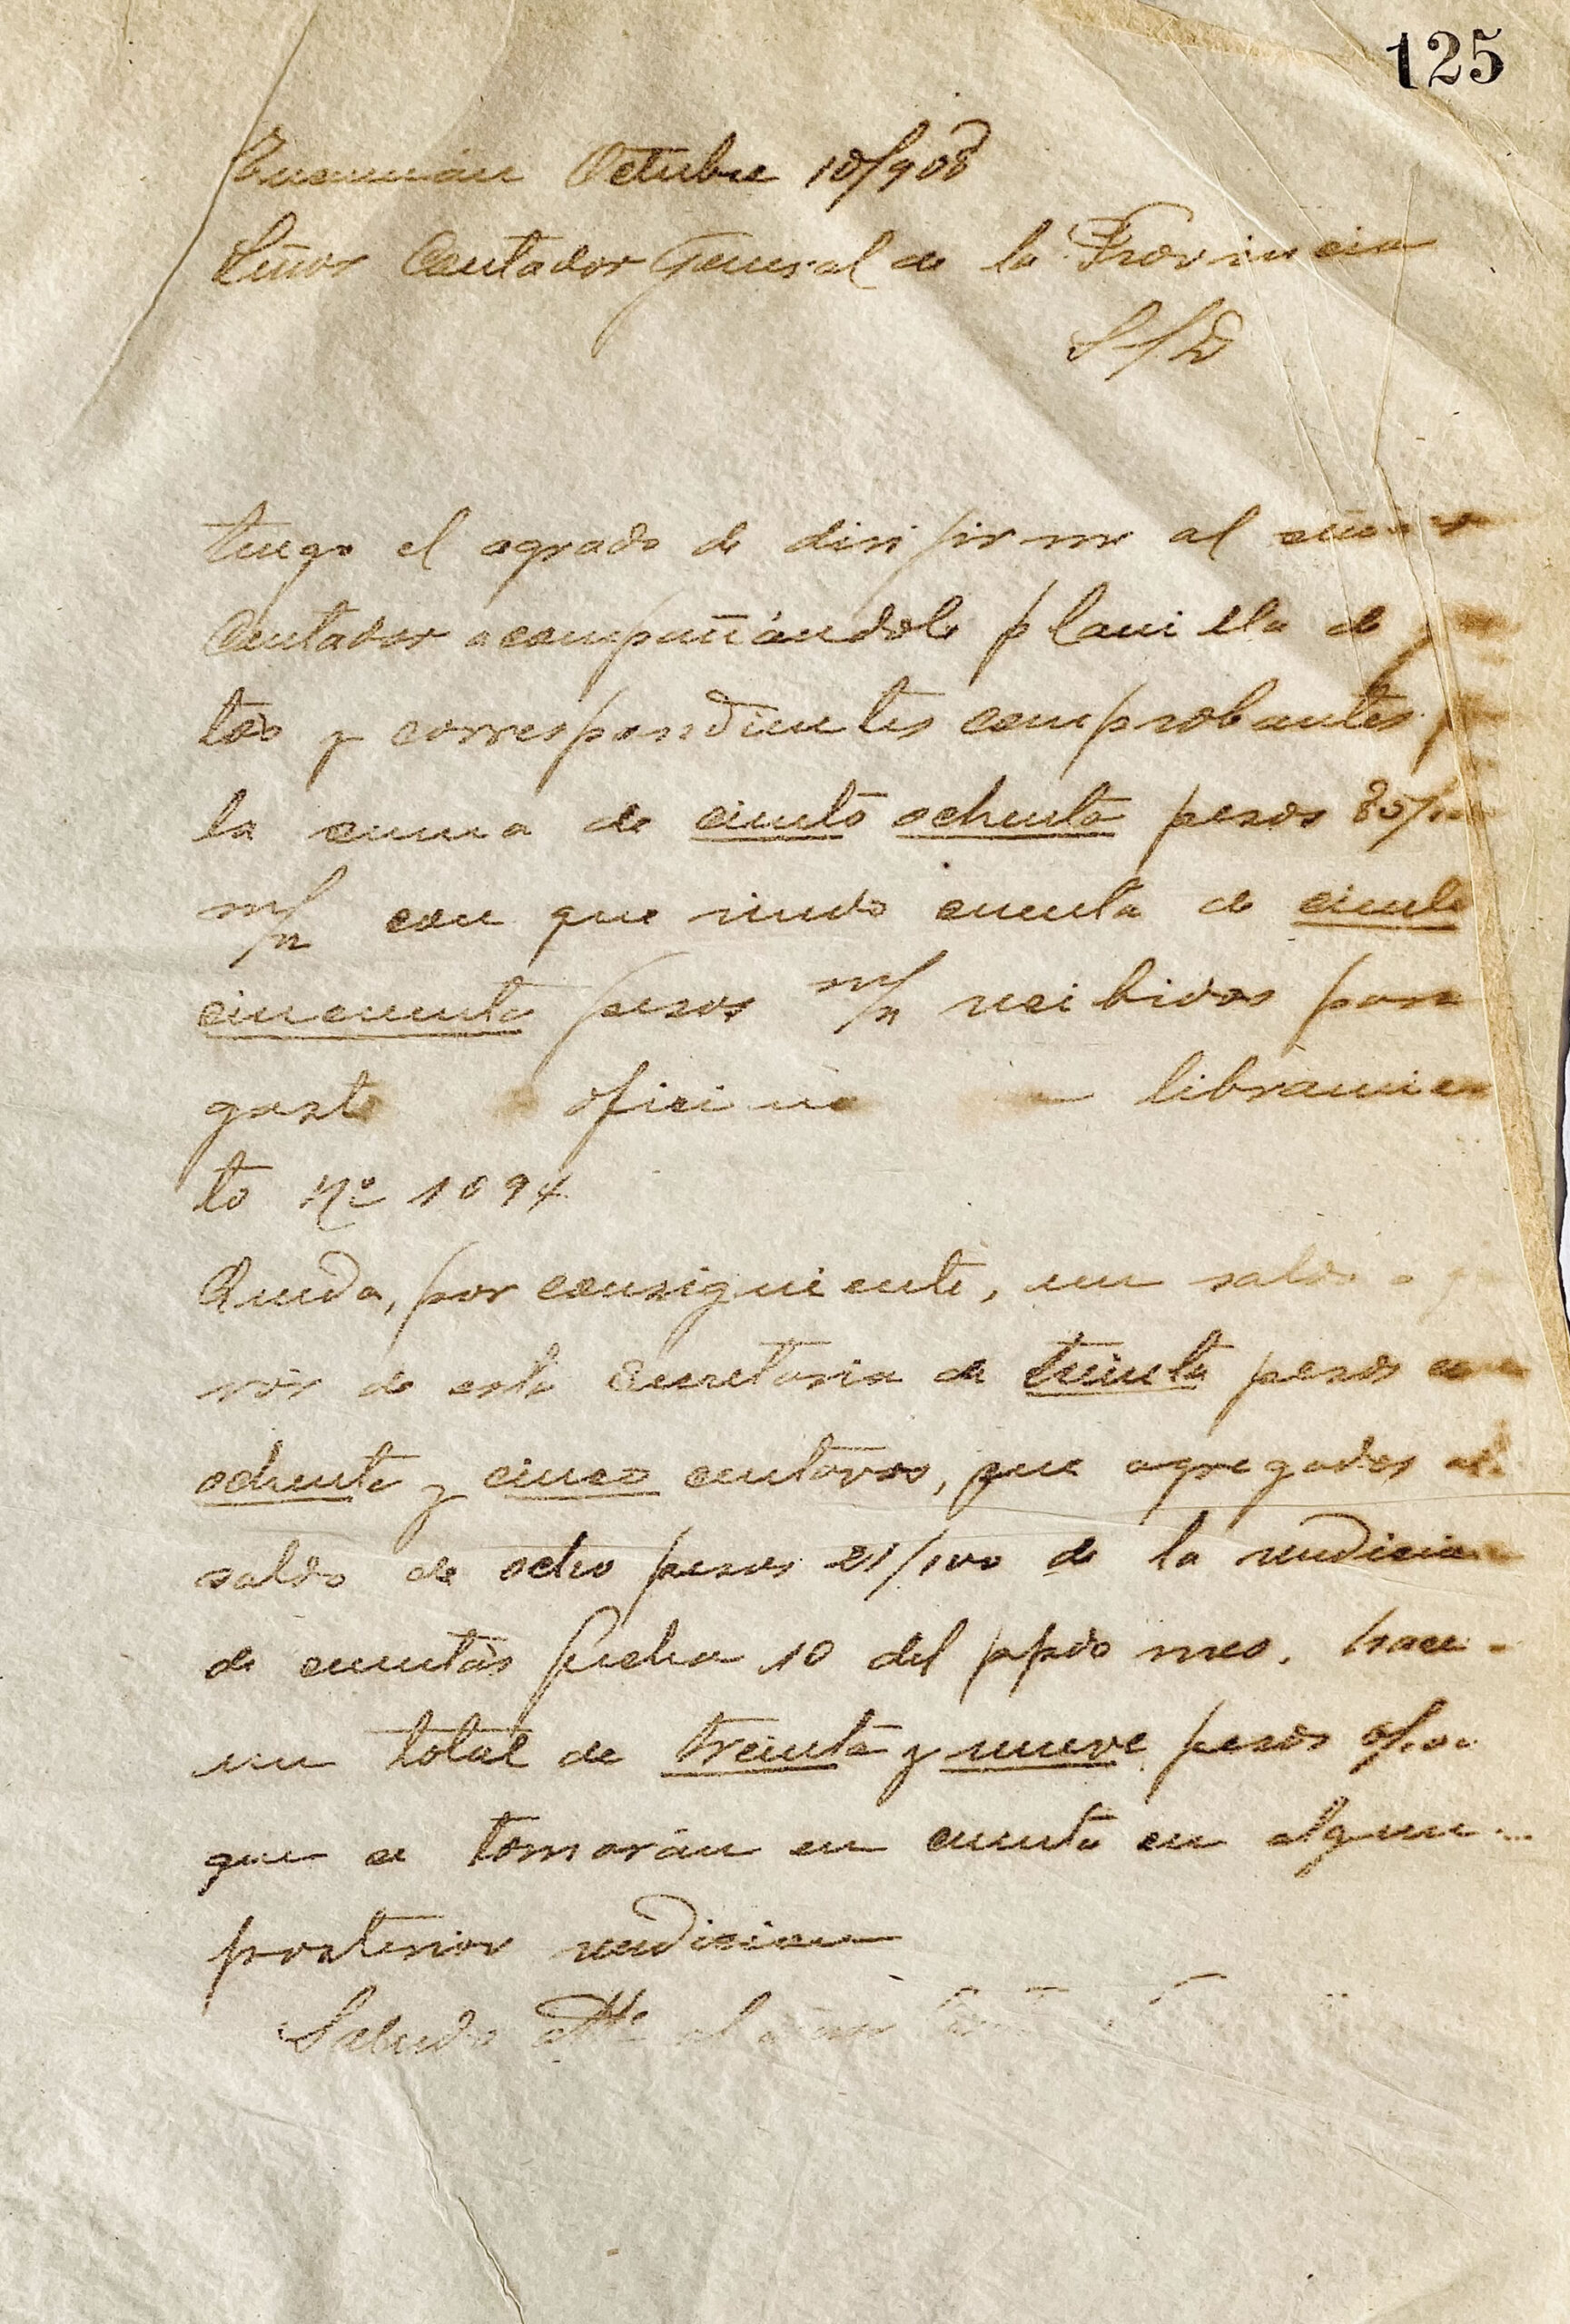 125
Tucumán Octubre 10/908
Señor Contador General de la Provincia
S/D
tengo el agrado de dirigirme al señor
Contador acompañándole planilla de
tos y correspondientes comprobantes
la suma de ciento ochenta pesos 85/100
m/n con que rindo cuenta de ciento
cincuenta pesos m/n recibidos para
gasto oficina libramien
to Nº 1094
Queda, por consiguiente, un saldo a
vor de esta Secretaria de treinta pesos con
ochenta y cinco centavos, que agregados al
saldo de ocho pesos 21/100 de la rendicion
de cuentas fecha 10 del ppdo mes, hace
un total de treinta y nueve pesos
que se tomarán en cuenta en alguna
posterior rendicion
Saludo atte al señor